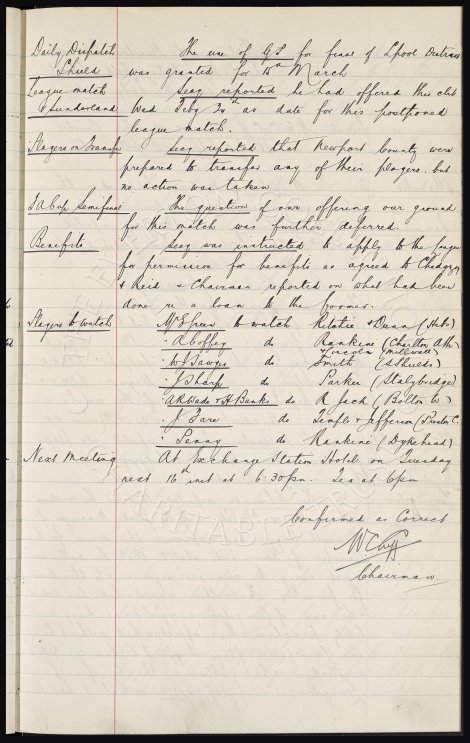 Daily Dispatch The use of G.P. for final of Lpool Central
Shield was granted for 15th March
League match Secy reported he had offered this club
v Sunderland Wed Feby 24th as date for this postponed
league match.
Players on Transfer Secy reported that Newport County were
prepared to transfer any of their players. but
no action was taken
FA Cup Semifinal The question of our offering our ground
for this match was further deferred.
Benefits Secy was instructed to apply to the League
for permission for benefits as agreed to Chedgzoy
& Reid & Chairman reported on what had been
done re a loan to the former.
Players to watch Mr E Green to watch Ritchie & Dunn (Hibs)
" A Coffey do Rankine (Charlton Ath)
& Lincoln (Millwall)
" W J Sawyer do Smith (S Shields)
" J Sharp do Parker (Stalybridge)
" A R Wade & H Banks do R Jack (Bolton W)
" J Fare do Temple & Jefferson (Preston C.
" Penny do Rankine (Dykehead)
Next Meeting At Exchange Station Hotel on Tuesday
next 16th inst at 6.30pm. Tea at 6pm
Confirmed as Correct
W C Cuff
Chairman